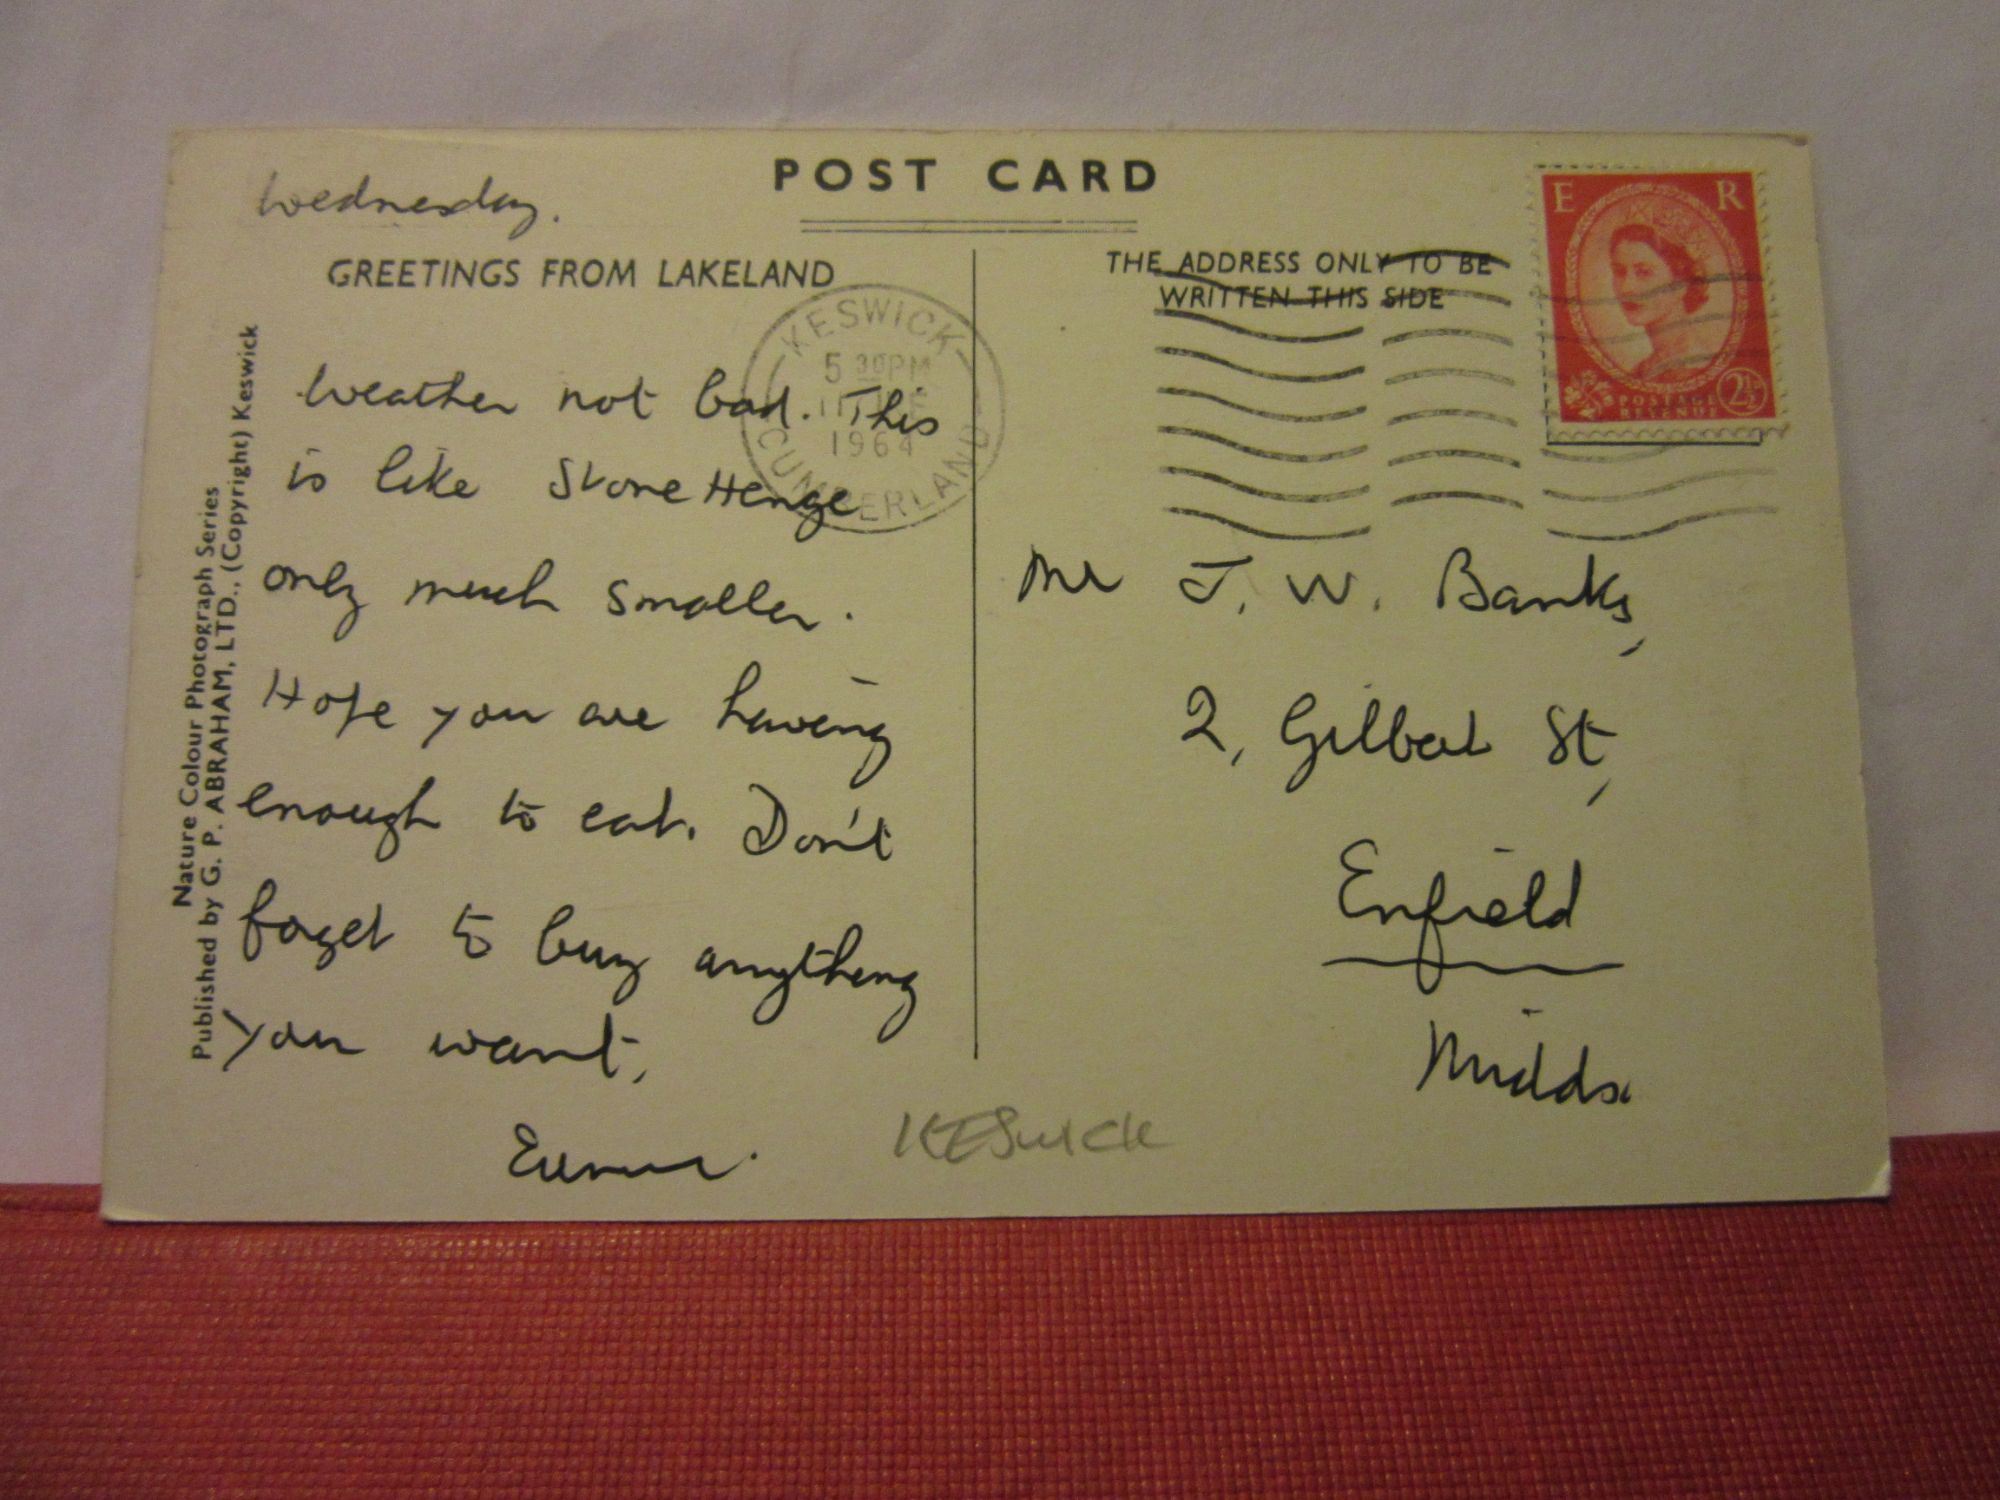 POST CARD
Wednesday.
GREETINGS FROM LAKELAND
THE ADDRESS ONLY TO BE
WRITTEN THIS SIDE
E R
POSTAGE
REVENUE
2½D
KESWICK
5 30PM
1964
CUMBERLAND
Weather not bad. This
is like Stone Henge
only much smaller.
Hope you are having
enough to eat. Don't
forget to buy anything
you want,
Mr J. W. Banks,
2, Gilbert St,
Enfield
Middx
KESWICK
Nature Colour Photograph Series
Published by G. P. ABRAHAM, LTD., (Copyright) Keswick